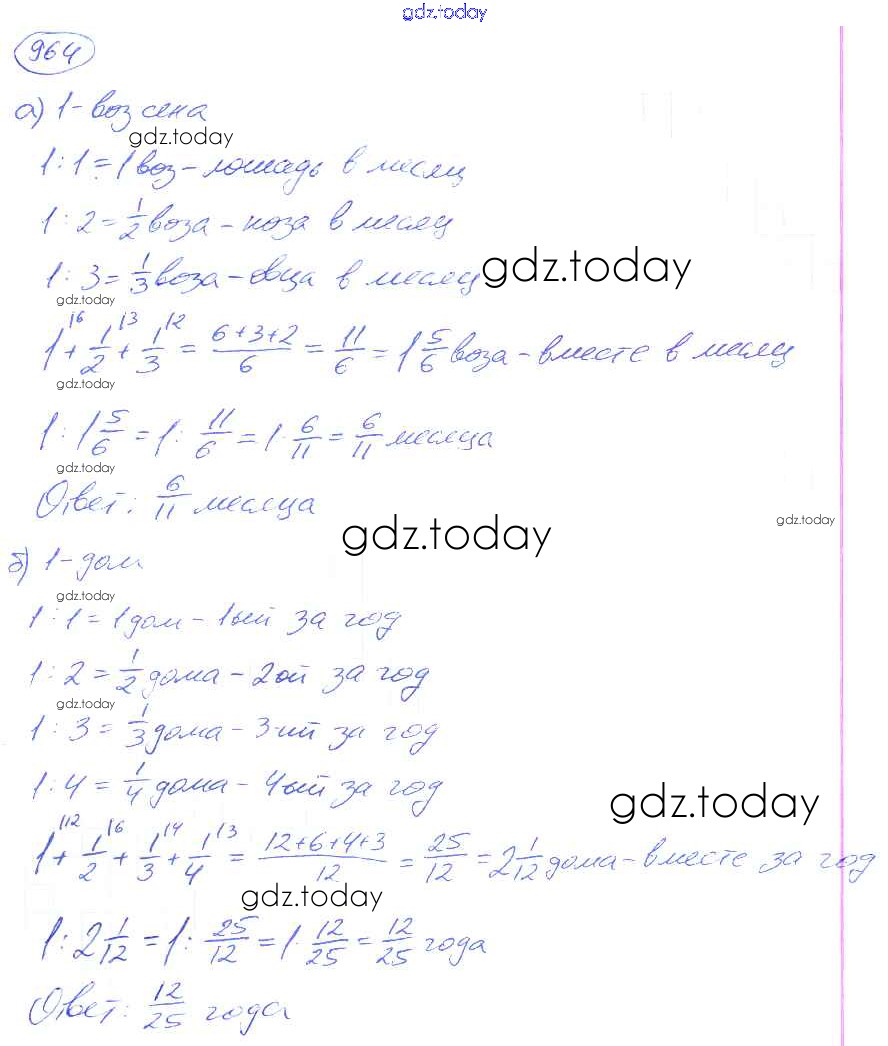 gdz.today
964
а) 1 - воз сена
gdz.today
1 : 1 = 1 воз - лошадь в месяц
1 : 2 = 1/2 воза - коза в месяц
1 : 3 = 1/3 воза - овца в месяц gdz.today
gdz.today
1\6 + 1/2\3 + 1/3\2 = (6+3+2)/6 = 11/6 = 1 5/6 воза - вместе в месяц
gdz.today
1 : 1 5/6 = 1 : 11/6 = 1 · 6/11 = 6/11 месяца
gdz.today
Ответ: 6/11 месяца
gdz.today
gdz.today
б) 1 - дом
gdz.today
1 : 1 = 1 дом - 1ый за год
1 : 2 = 1/2 дома - 2ой за год
gdz.today
1 : 3 = 1/3 дома - 3-ий за год
1 : 4 = 1/4 дома - 4ый за год
gdz.today
1\12 + 1/2\6 + 1/3\4 + 1/4\3 = (12+6+4+3)/12 = 25/12 = 2 1/12 дома - вместе за год
gdz.today
1 : 2 1/12 = 1 : 25/12 = 1 · 12/25 = 12/25 года
Ответ: 12/25 года